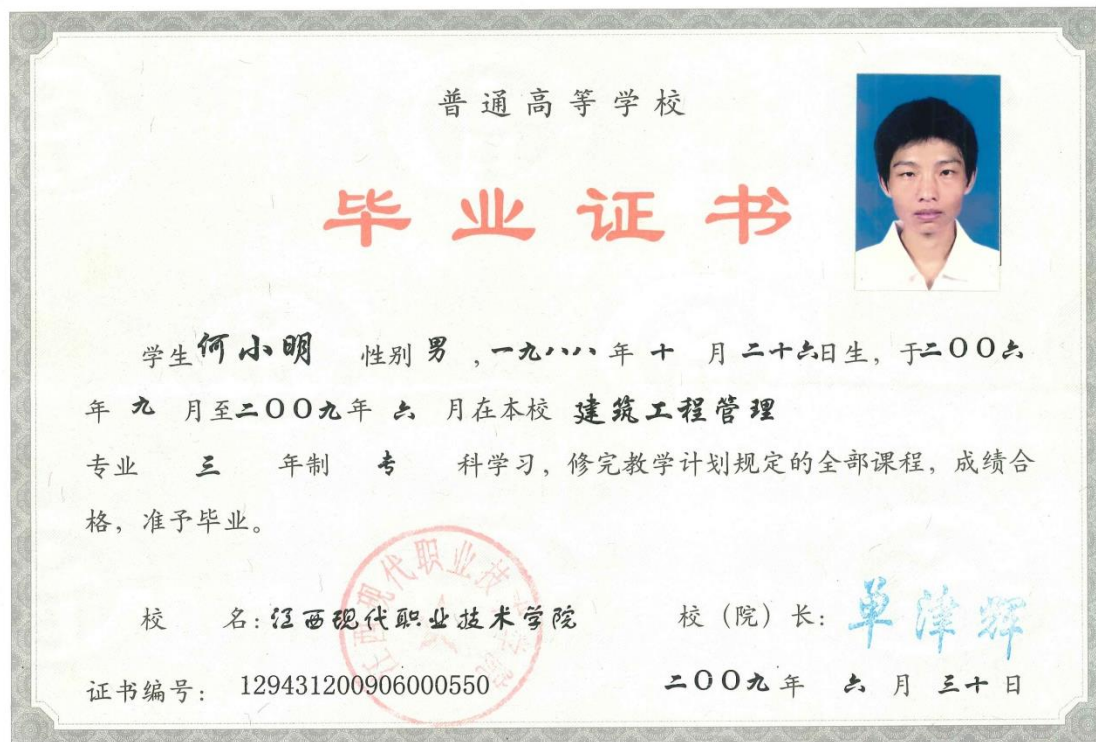 普通高等学校
毕业证书
学生何小明 性别男,一九八八年十月二十六日生,于二〇〇六
年九月至二〇〇九年六月在本校 建筑工程管理
专业 三 年制 专 科学习,修完教学计划规定的全部课程,成绩合
格,准予毕业。
江西现代职业技术学院
校 名:江西现代职业技术学院 校(院)长:单津辉
证书编号: 129431200906000550 二〇〇九年 六月三十日